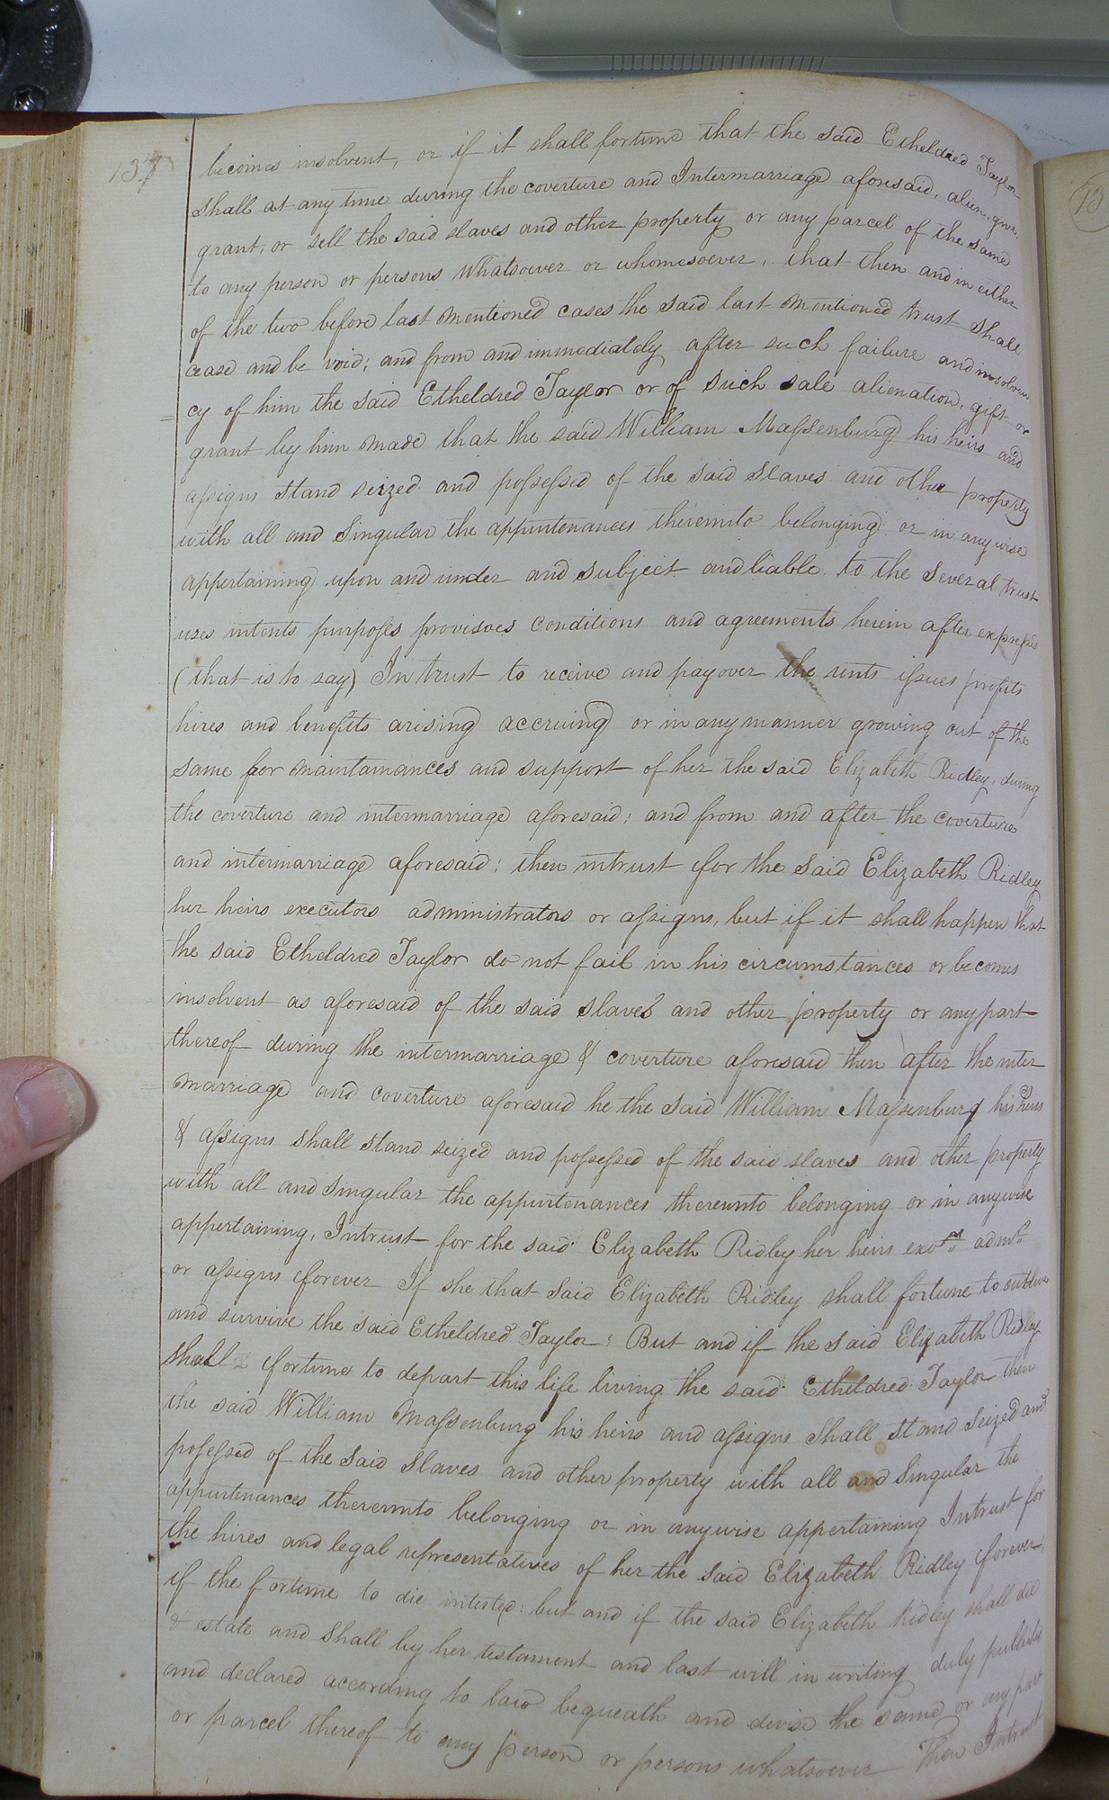 137
becomes insolvent, or if it shall fortune that the said Etheldred Taylor
shall at any time during the coverture and Intermarriage aforesaid, alien, give,
grant, or sell the said slaves and other property or any parcel of the same
to any person or persons whatsoever or whomesoever, that then and in either
of the two before last mentioned cases the said last mentioned trust shall
cease and be void; and from and immediately after such failure and insolven
cy of him the said Etheldred Taylor or of such sale alienation, gift or
grant by him made that the said William Massenburg his heirs and
assigns stand seized and possessed of the said slaves and other property
with all and Singular the appurtenances thereunto belonging or in anywise
appertaining upon and under and subject and liable to the several trust
uses intents purposes provisoes conditions and agreements herein after expressed
(that is to say) In trust to receive and pay over the rents issues profits
hires and benefits arising accruing or in any manner growing out of the
same for maintainances and support of her the said Elizabeth Ridley, during
the coverture and intermarriage aforesaid; and from and after the coverture
and intermarriage aforesaid: then intrust for the said Elizabeth Ridley
her heirs executors administrators or assigns, but if it shall happen that
the said Etheldred Taylor do not fail in his circumstances or becomes
insolvent as aforesaid of the said slaves and other property or any part
thereof during the intermarriage & coverture aforesaid then after the inter
marriage and coverture aforesaid he the said William Massenburg his heirs
& assigns shall stand seized and possessed of the said slaves and other property
with all and singular the appurtenances thereunto belonging or in anywise
appertaining, Intrust for the said Elizabeth Ridley her heirs exors admrs
or assigns forever If she that said Elizabeth Ridley shall fortune to outlive
and survive the said Etheldred Taylor; But and if the said Elizabeth Ridley
shall fortune to depart this life living the said Etheldred Taylor then
the said William Massenburg his heirs and assigns shall stand seized and
possessed of the said slaves and other property with all and singular the
appurtenances thereunto belonging or in anywise appertaining Intrust for
the hires and legal representatives of her the said Elizabeth Ridley forever,
if the fortune to die : but and if the said Elizabeth Ridley shall die
& estate and shall by her testament and last will in writing duly published
and declared according to law bequeath and devise the same or any part
or parcel thereof to any person or persons whatsoever Then Intrust